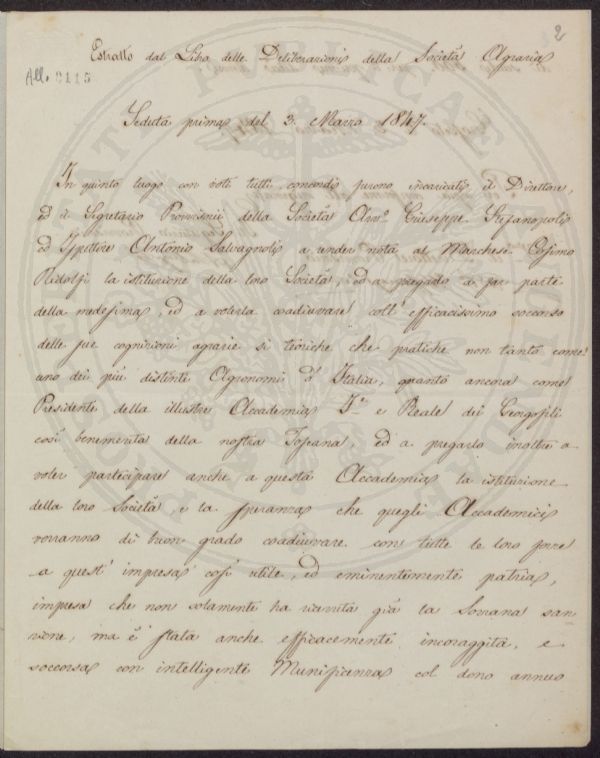 2
Estratto dal Libro delle Deliberazioni della Società Agraria
All. 2115
Seduta prima del 3. Marzo 1847.
In quinto luogo con voti tutti concordi furono incaricati, il Direttore,
ed il Segretario Provvisorii della Società Avv.º Giuseppe Stefanopoli
ed Ispettore Antonio Salvagnoli a render nota al Marchese Cosimo
Ridolfi la istituzione della loro Società, ed a pregarlo a far parte
della medesima, ed a volerla coadiuvare coll' efficacissimo soccorso
delle sue cognizioni agrarie sì teoriche che pratiche non tanto come
uno dei più distinti Agronomi d' Italia, quanto ancora come
Presidente della illustre Accademia I. e Reale dei Georgofili
così benemerita della nostra Toscana, ed a pregarlo inoltre a
voler partecipare anche a questa Accademia la istituzione
della loro Società, e la speranza che quegli Accademici
vorranno di buon grado coadiuvare con tutte le loro forze
a quest' impresa così utile, ed eminentemente patria,
impresa che non solamente ha ricevuta già la Sovrana san-
zione, ma è stata anche efficacemente incoraggita, e
soccorsa con intelligente Munificenza col dono annuo